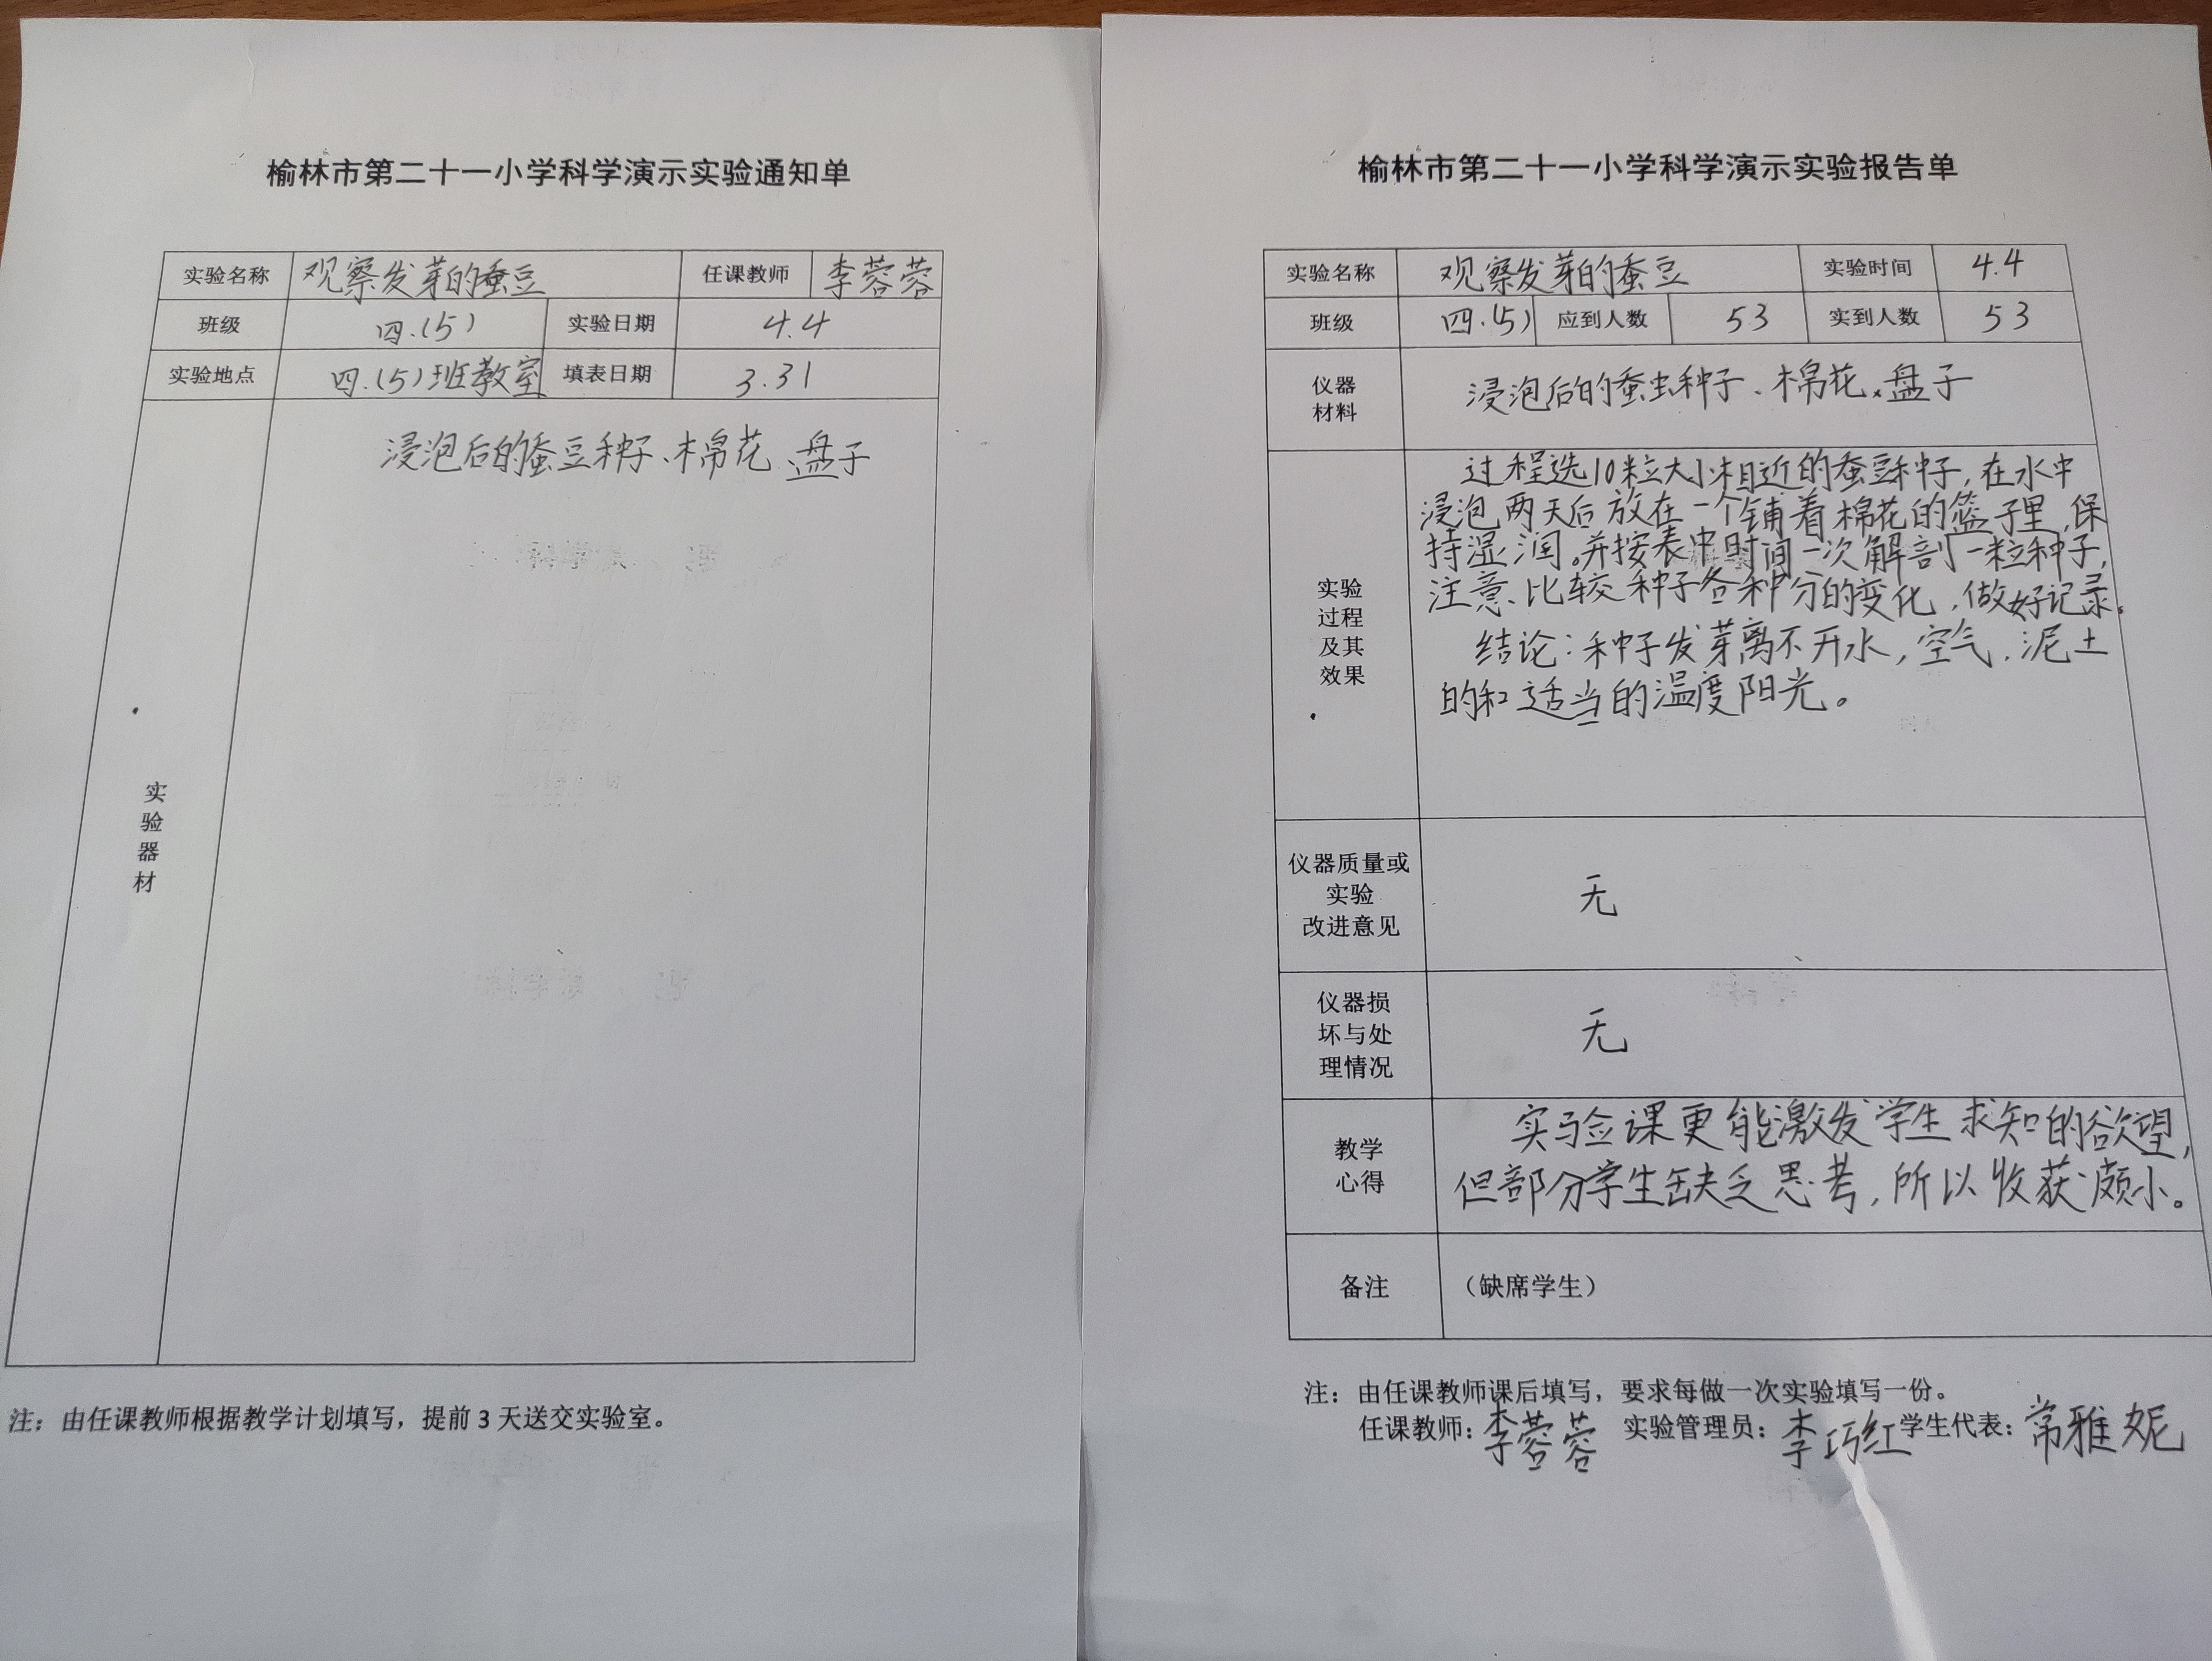 榆林市第二十一小学科学演示实验通知单
实验名称 观察发芽的蚕豆 任课教师 李蓉蓉
班级 四.(5) 实验日期 4.4
实验地点 四.(5)班教室 填表日期 3.31
实验器材
浸泡后的蚕豆种子、棉花 盘子
注：由任课教师根据教学计划填写，提前3天送交实验室。
榆林市第二十一小学科学演示实验报告单
实验名称 观察发芽的蚕豆 实验时间 4.4
班级 四.(5) 应到人数 53 实到人数 53
仪器
材料
浸泡后的蚕虫种子、棉花、盘子
实验
过程
及其
效果
过程选10粒大小相近的蚕豆种子，在水中
浸泡两天后放在一个铺着棉花的篮子里，保
持湿润。并按表中时间一次解剖一粒种子，
注意、比较种子各种分的变化，做好记录。
结论：种子发芽离不开水，空气，泥土
的和适当的温度阳光。
仪器质量或
实验
改进意见
无
仪器损
坏与处
理情况
无
教学
心得
实验课更能激发学生求知的欲望，
但部分学生缺乏思考，所以收获颇小。
备注 （缺席学生）
注：由任课教师课后填写，要求每做一次实验填写一份。
任课教师：李蓉蓉 实验管理员：李巧红 学生代表：常雅妮